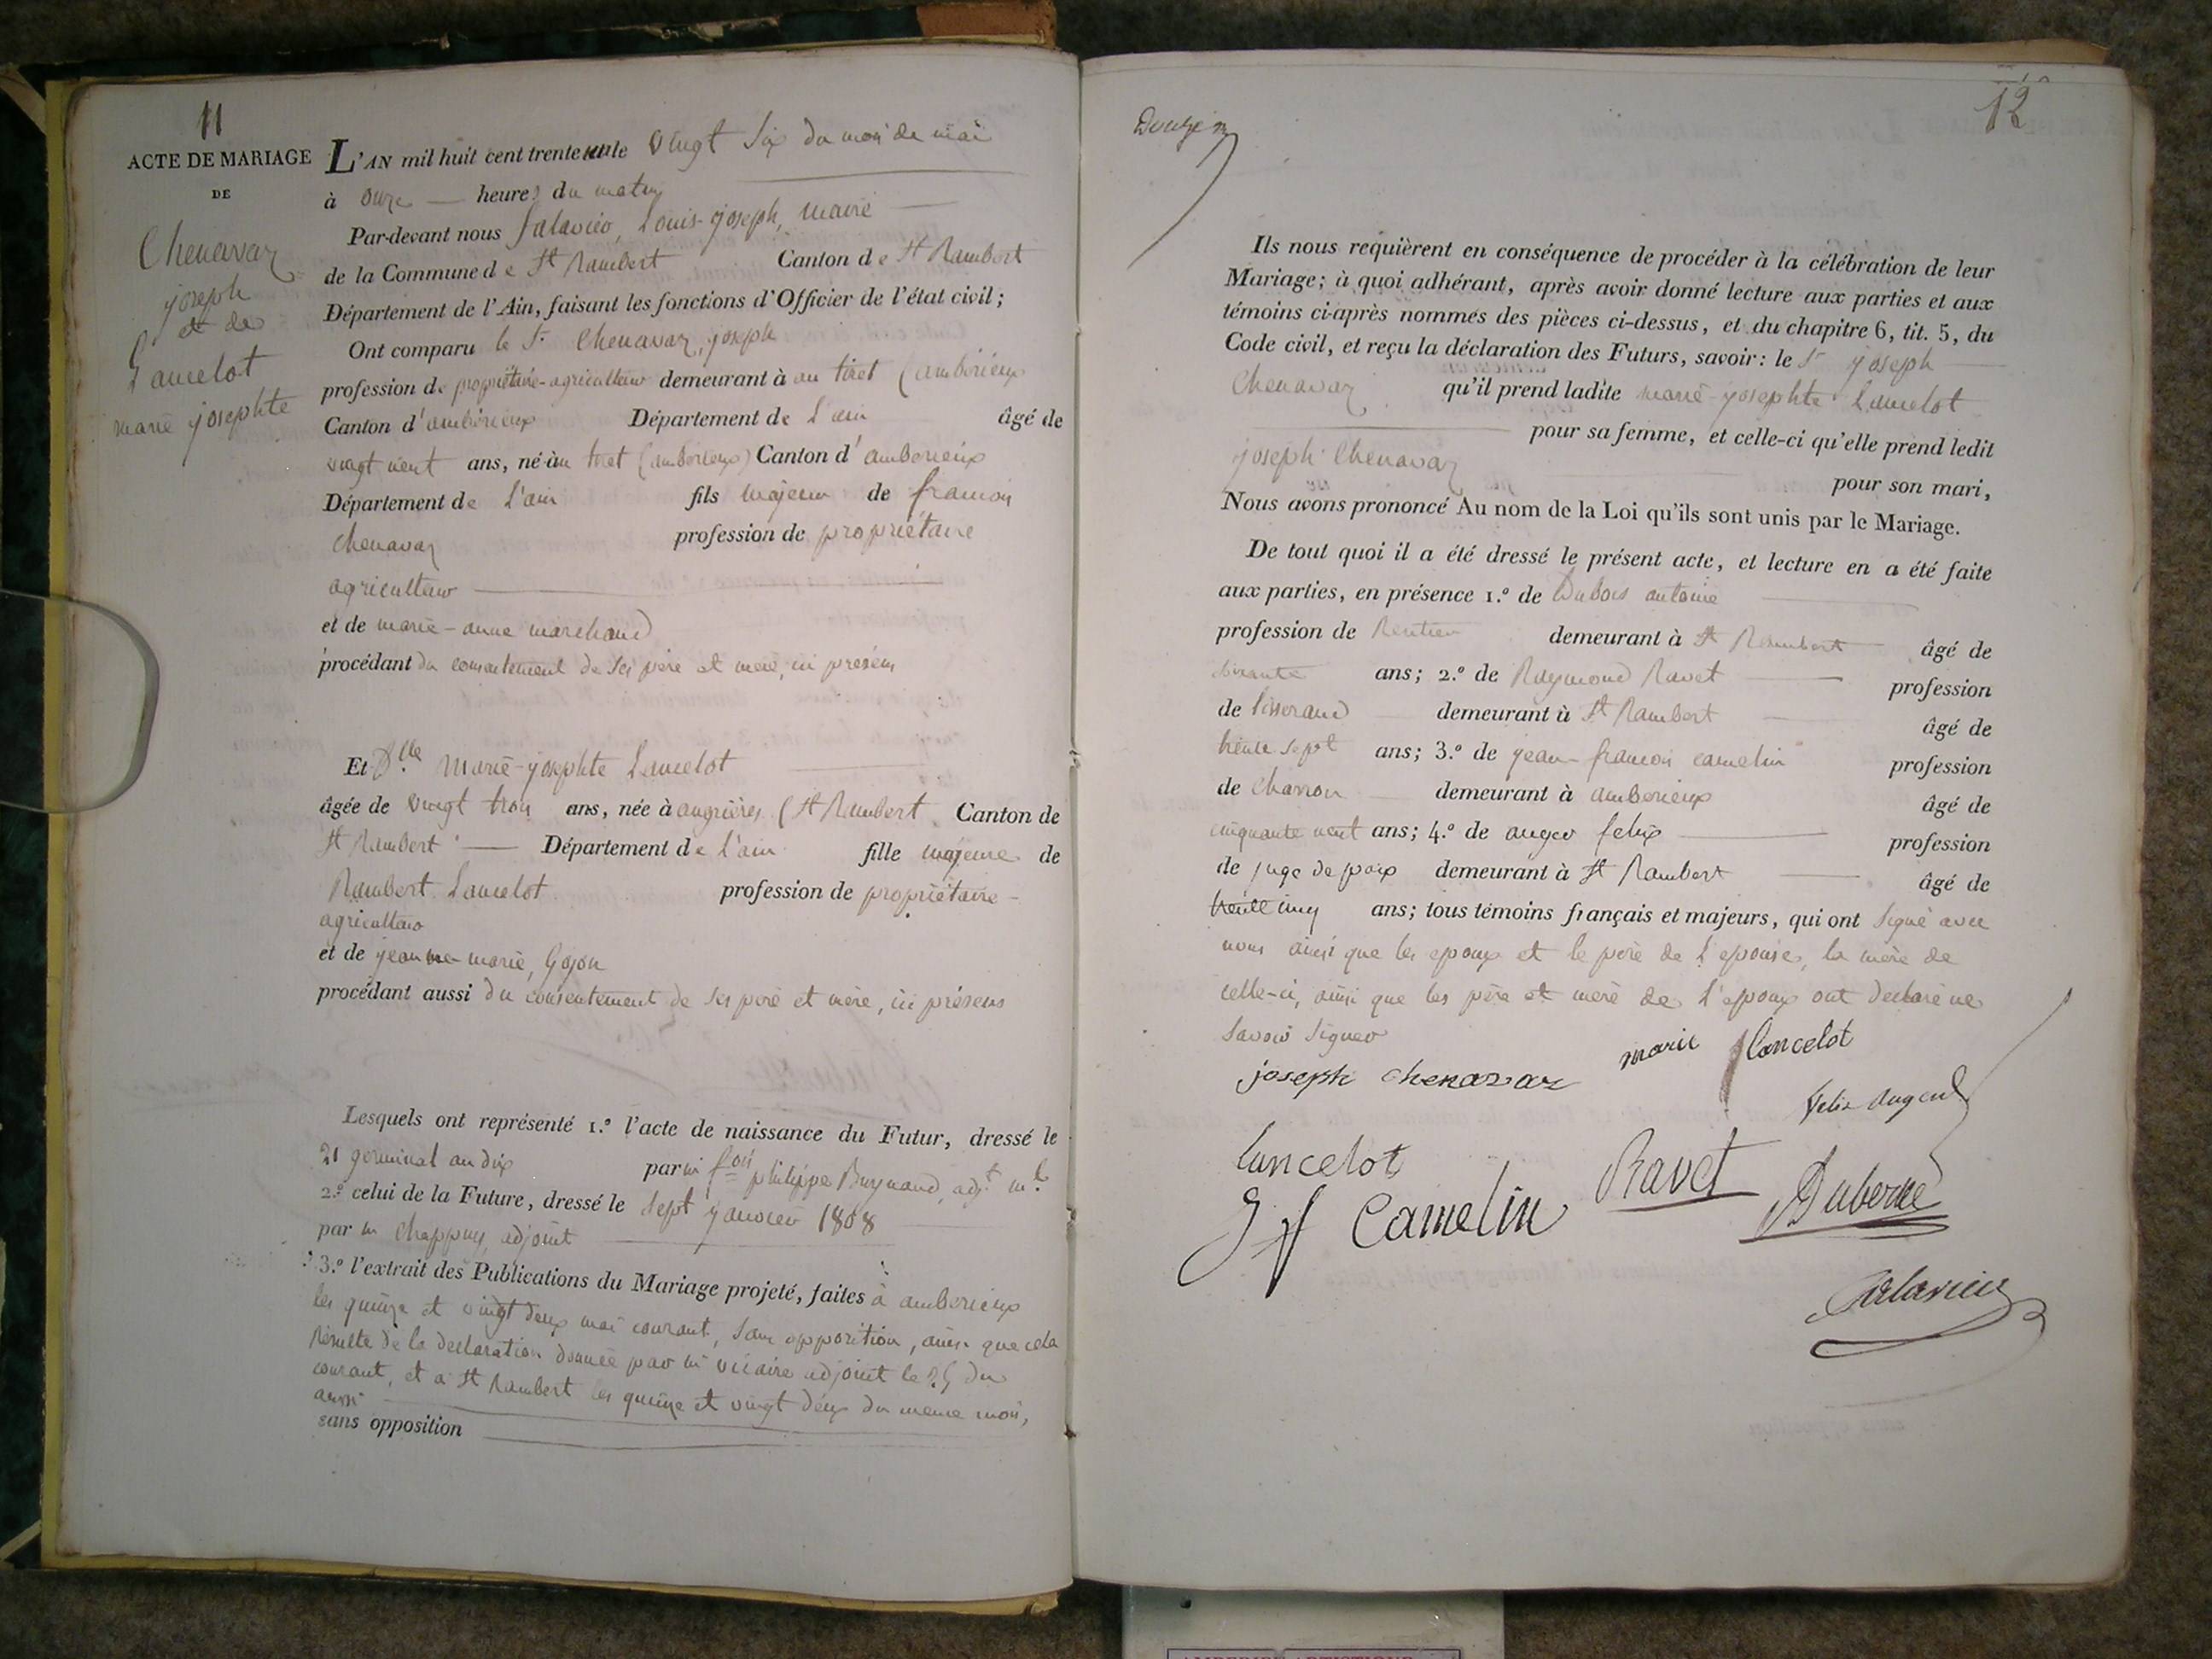 11
ACTE DE MARIAGE
DE
Chenavaz
joseph
et de
Lancelot
marie josephte
L'AN mil huit cent trente vingt Six du mois de mai
à onze heures du matin
Par-devant nous Louis-joseph, maire
de la Commune de St Rambert Canton de St Rambert
Département de l'Ain, faisant les fonctions d'Officier de l'état civil;
Ont comparu le Sr Chenavaz, joseph
profession de propriétaire-agriculteur demeurant à au tiret (amberieux
Canton d'amberieux Département de L'ain âgé de
vingt neuf ans, né au tiret (amberieux) Canton d'amberieux
Département de L'ain fils majeur de francois
Chenavaz profession de propriétaire
agriculteur
et de marie-anne marchand
procédant du consentement de ses père et mère, ici présens
Et Dlle Marie-josephte Lancelot
âgée de vingt trois ans, née à angrières (St Rambert Canton de
St Rambert Département de L'ain fille majeure de
Rambert Lancelot profession de propriétaire-
agriculteur
et de jeanne-marie, Gojon
procédant aussi du consentement de ses père et mère, ici présens
Lesquels ont représenté 1.º l'acte de naissance du Futur, dressé le
21 germinal an dix par m fois philippe adjt ml
2.º celui de la Future, dressé le Sept janvier 1808
par m Chappuy, adjoint
3.º l'extrait des Publications du Mariage projeté, faites à amberieux
les quinze et vingt deux mai courant, Sans opposition, ainsi que cela
Résulte de la declaration donnée par m vicaire adjoint le 25 du
courant, et à St Rambert les quinze et vingt deux du meme mois,
aussi
sans opposition
12
Ils nous requièrent en conséquence de procéder à la célébration de leur
Mariage; à quoi adhérant, après avoir donné lecture aux parties et aux
témoins ci-après nommés des pièces ci-dessus, et du chapitre 6, tit. 5, du
Code civil, et reçu la déclaration des Futurs, savoir: le Sr joseph
Chenavaz qu'il prend ladite marie-josephte Lancelot
pour sa femme, et celle-ci qu'elle prend ledit
joseph Chenavaz
pour son mari,
Nous avons prononcé Au nom de la Loi qu'ils sont unis par le Mariage.
De tout quoi il a été dressé le présent acte, et lecture en a été faite
aux parties, en présence 1.º de antoine
profession de Rentier demeurant à St Rambert âgé de
soixante ans; 2.º de Raymond Ravet profession
de tisserand demeurant à St Rambert âgé de
trente sept ans; 3.º de jean-francois camelin profession
de charron demeurant à amberieux âgé de
cinquante neuf ans; 4.º de auger felix profession
de juge de paix demeurant à St Rambert âgé de
trente cinq ans; tous témoins français et majeurs, qui ont Signé avec
nous ainsi que les epoux et le père de L'epouse, la mère de
celle-ci, ainsi que les père et mère de L'epoux ont declaré ne
Savoir Signer
joseph chenavaz marie lancelot
felix auger
lancelot
J f Camelin Ravet